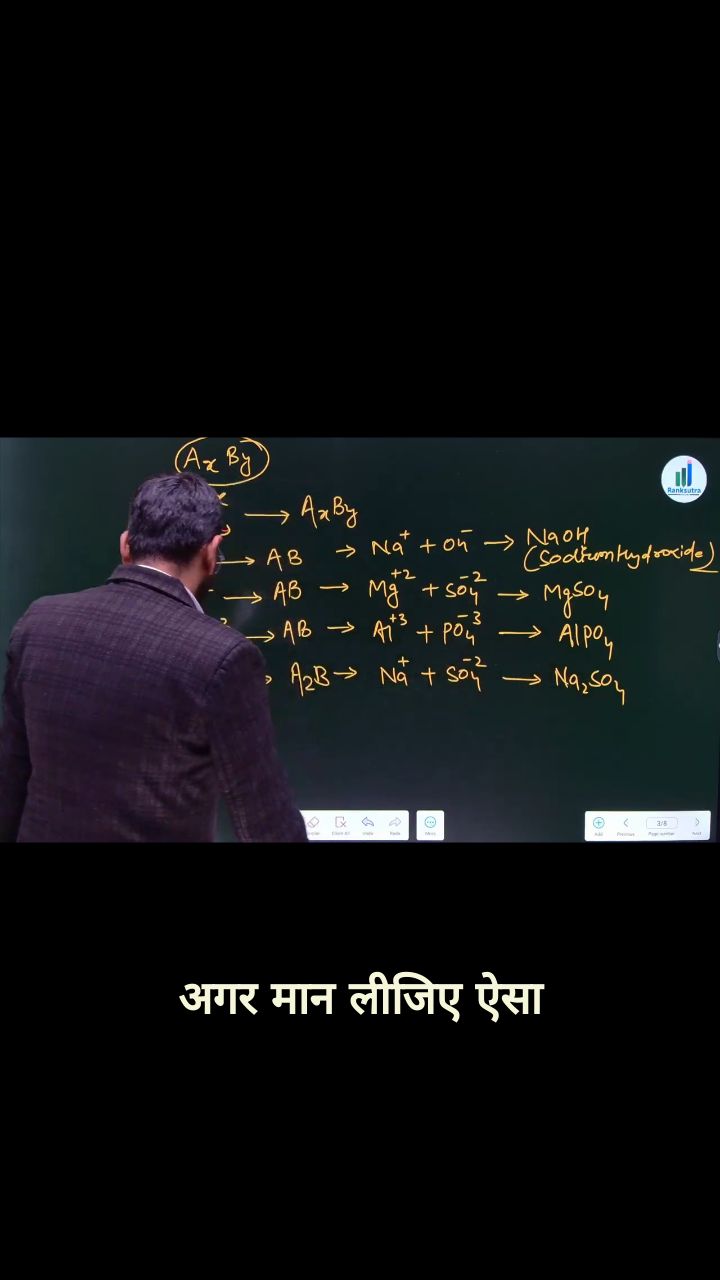 AₓBy
Ranksutra
→ AₓBy
→ AB → Na⁺ + OH⁻ → NaOH
(Sodium Hydroxide)
→ AB → Mg⁺² + SO₄⁻² → MgSO₄
→ AB → Al⁺³ + PO₄⁻³ → AlPO₄
→ A₂B → Na⁺ + SO₄⁻² → Na₂SO₄
Clear All Undo Redo More Add Previous 3/8 Page number Next
अगर मान लीजिए ऐसा